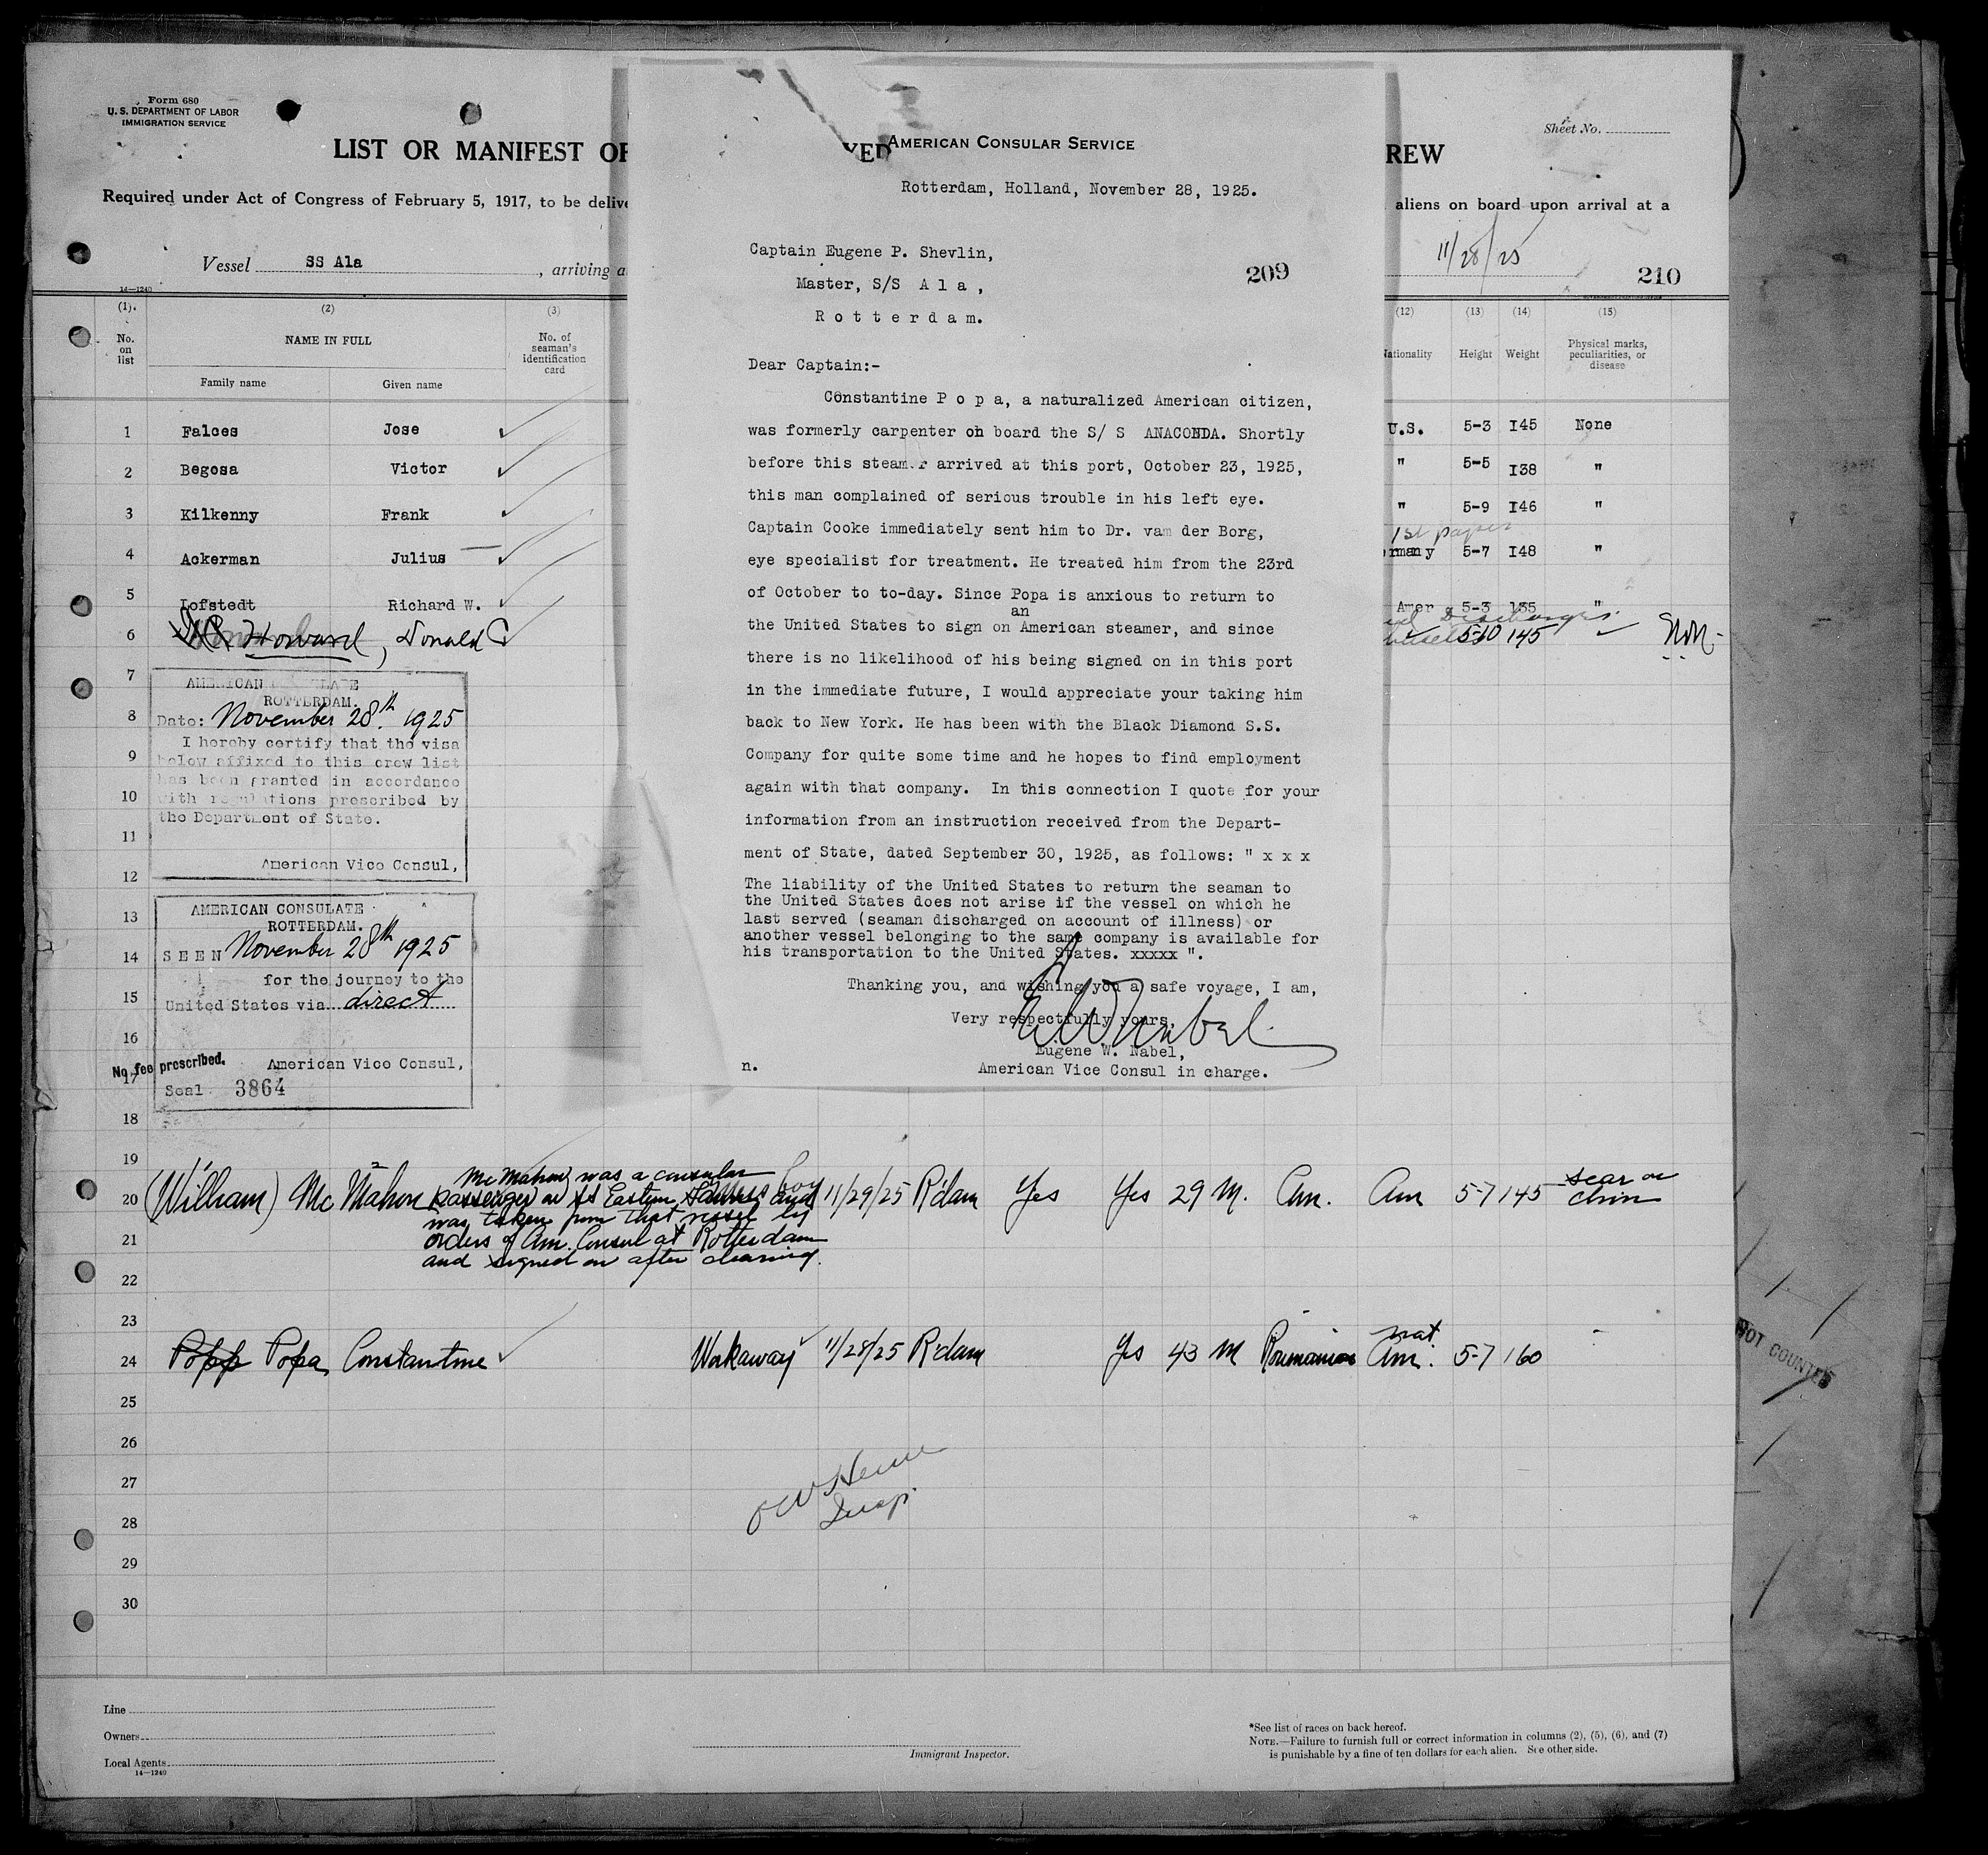 Form 680
U. S. DEPARTMENT OF LABOR
IMMIGRATION SERVICE
LIST OR MANIFEST OF
YED
REW
Sheet No.
Required under Act of Congress of February 5, 1917, to be delive
aliens on board upon arrival at a
Vessel SS Ala , arriving a
11/28/25
210
14—1240
(1).
(2)
(3)
(12)
(13)
(14)
(15)
No. on list
NAME IN FULL
Family name
Given name
No. of seaman's identification card
Nationality
Height
Weight
Physical marks, peculiarities, or disease
1 Falces Jose U.S. 5-3 I45 None
2 Begosa Victor " 5-5 I38 "
3 Kilkenny Frank " 5-9 I46 "
1st papers
4 Ackerman Julius rmany 5-7 I48 "
5 Lofstedt Richard W. Amer 5-3 135 "
6 Howard, Donald 5-10 145
7
8
9
10
11
12
13
14
15
16
17
18
19
20
21
22
23
24
25
26
27
28
29
30
AMERICAN CONSULATE
ROTTERDAM.
Date: November 28th. 1925
I hereby certify that the visa
below affixed to this crew list
has been granted in accordance
with regulations prescribed by
the Department of State.
American Vice Consul,
AMERICAN CONSULATE
ROTTERDAM.
SEEN November 28th 1925
for the journey to the
United States via direct
No fee prescribed.
American Vice Consul,
Seal 3864
AMERICAN CONSULAR SERVICE
Rotterdam, Holland, November 28, 1925.
Captain Eugene P. Shevlin,
209
Master, S/S A l a ,
R o t t e r d a m.
Dear Captain:-
Constantine P o p a, a naturalized American citizen,
was formerly carpenter on board the S/ S ANACONDA. Shortly
before this steamer arrived at this port, October 23, 1925,
this man complained of serious trouble in his left eye.
Captain Cooke immediately sent him to Dr. vam der Borg,
eye specialist for treatment. He treated him from the 23rd
of October to to-day. Since Popa is anxious to return to
an
the United States to sign on American steamer, and since
there is no likelihood of his being signed on in this port
in the immediate future, I would appreciate your taking him
back to New York. He has been with the Black Diamond S.S.
Company for quite some time and he hopes to find employment
again with that company. In this connection I quote for your
information from an instruction received from the Depart-
ment of State, dated September 30, 1925, as follows: " x x x
The liability of the United States to return the seaman to
the United States does not arise if the vessel on which he
last served (seaman discharged on account of illness) or
another vessel belonging to the same company is available for
his transportation to the United States. xxxxx ".
Thanking you, and wishing you a safe voyage, I am,
Very respectfully yours,
Eugene W. Nabel,
n. American Vice Consul in charge.
(William) McMahon 11/29/25 R'dam Yes Yes 29 M. Am. Am 5-7 145 scar on chin
McMahon was a consular
passenger on SS Eastern and
was taken from that vessel by
orders of Am. Consul at Rotterdam
and signed on after clearing.
Popp Popa Constantine Workaway 11/28/25 R'dam Yes 43 M Roumanian nat Am. 5-7 160
Insp.
NOT COUNTED
Line
Owners
Local Agents
14—1240
Immigrant Inspector.
*See list of races on back hereof.
NOTE.—Failure to furnish full or correct information in columns (2), (5), (6), and (7)
is punishable by a fine of ten dollars for each alien. See other side.